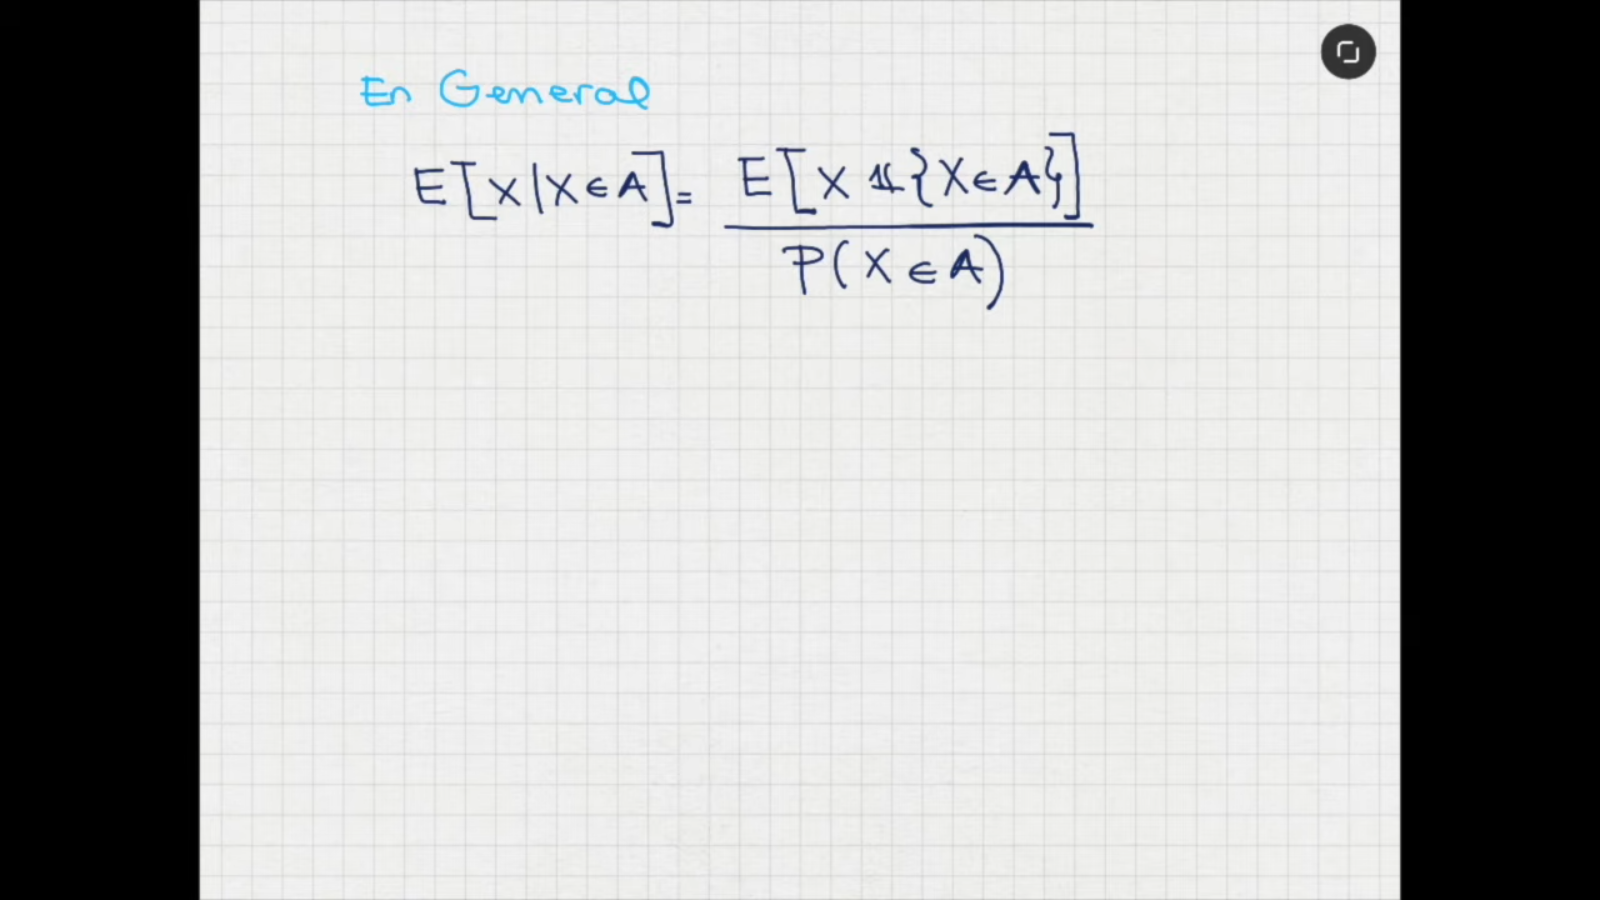 En General
E[X|X∈A] = E[X 𝟙{X∈A}] / P(X∈A)